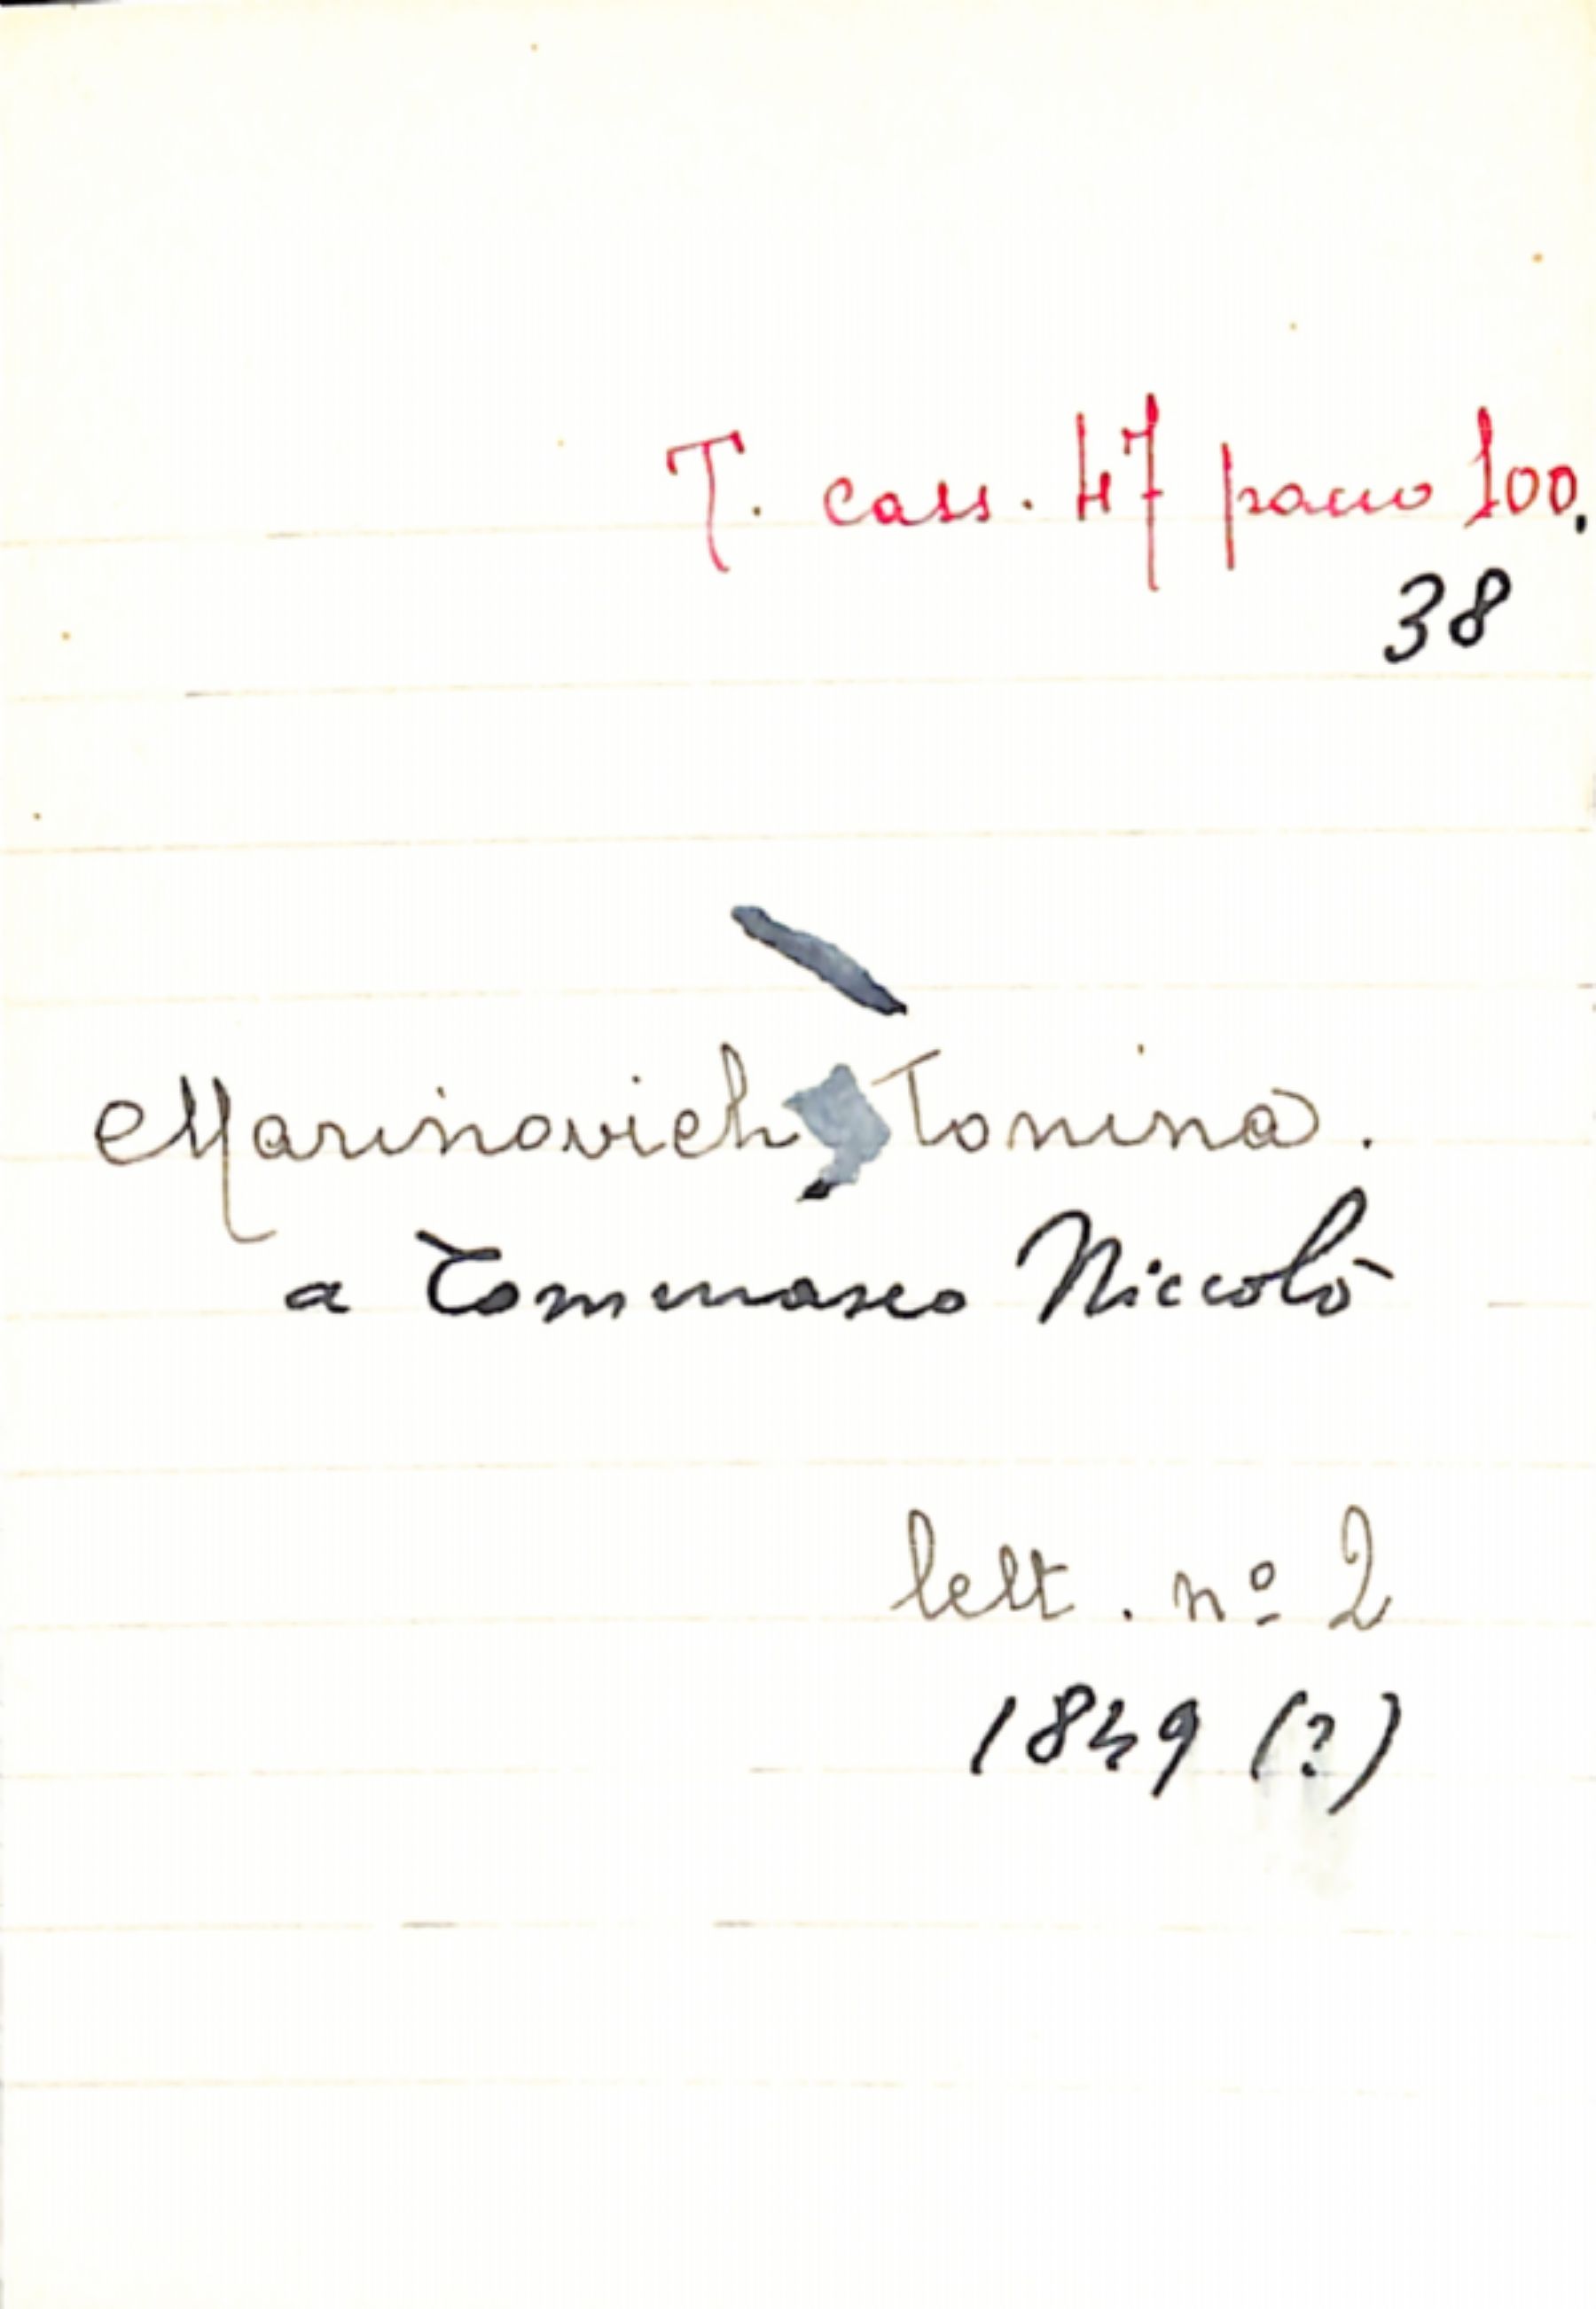 T. cass. 47 pacco 100.
38
Marinovich, Tonina.
a Tommaseo Niccolò
lett. nº 2
1849 (?)